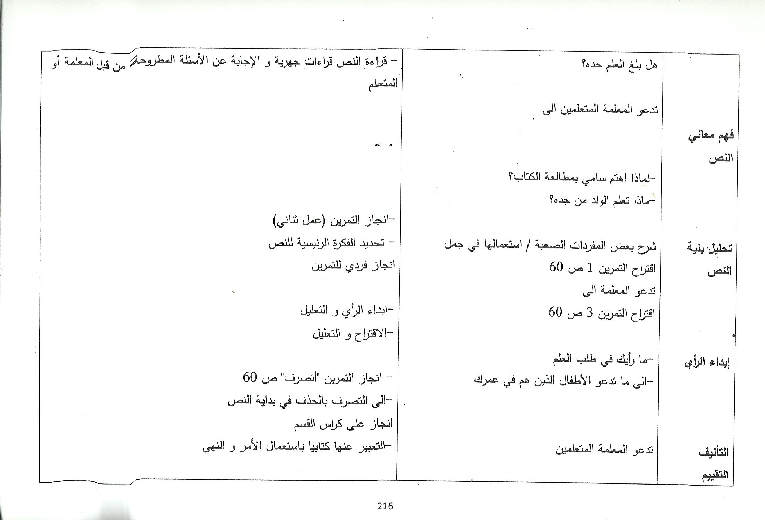 هل بلغ العلم حده؟
تدعو المعلمة المتعلمين الى
فهم معاني
النص
-لماذا اهتم سامي بمطالعة الكتاب؟
-ماذا تعلم الولد من جده؟
تحليل بنية
النص
شرح بعض المفردات الصعبة / استعمالها في جمل
اقتراح التمرين 1 ص 60
تدعو المعلمة الى
اقتراح التمرين 3 ص 60
إبداء الرأي
-ما رأيك في طلب العلم
-الى ما تدعو الأطفال الذين هم في عمرك
التأليف
التقييم
تدعو المعلمة المتعلمين
- قراءة النص قراءات جهرية و الإجابة عن الأسئلة المطروحة من قبل المعلمة أو
المتعلم
-انجاز التمرين (عمل ثنائي)
- تحديد الفكرة الرئيسية للنص
انجاز فردي للتمرين
-ابداء الرأي و التعليل
-الاقتراح و التعليل
- انجاز التمرين "أتصرف" ص 60
-الى التصرف بالحذف في بداية النص
انجاز على كراس القسم
-التعبير عنها كتابيا باستعمال الأمر و النهي
216